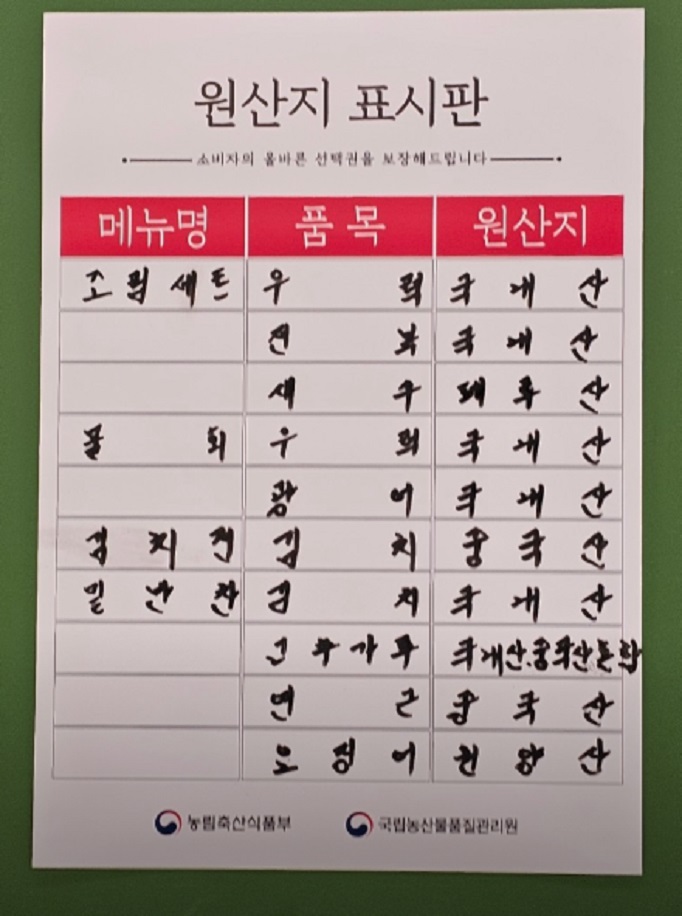 원산지 표시판
소비자의 올바른 선택권을 보장해드립니다
메뉴명 품목 원산지
조림세트 우럭 국내산
전복 국내산
새우 페루산
물회 우럭 국내산
광어 국내산
김치전 김치 중국산
밑반찬 김치 국내산
고추가루 국내산.중국산혼합
연근 중국산
오징어 원양산
농림축산식품부 국립농산물품질관리원